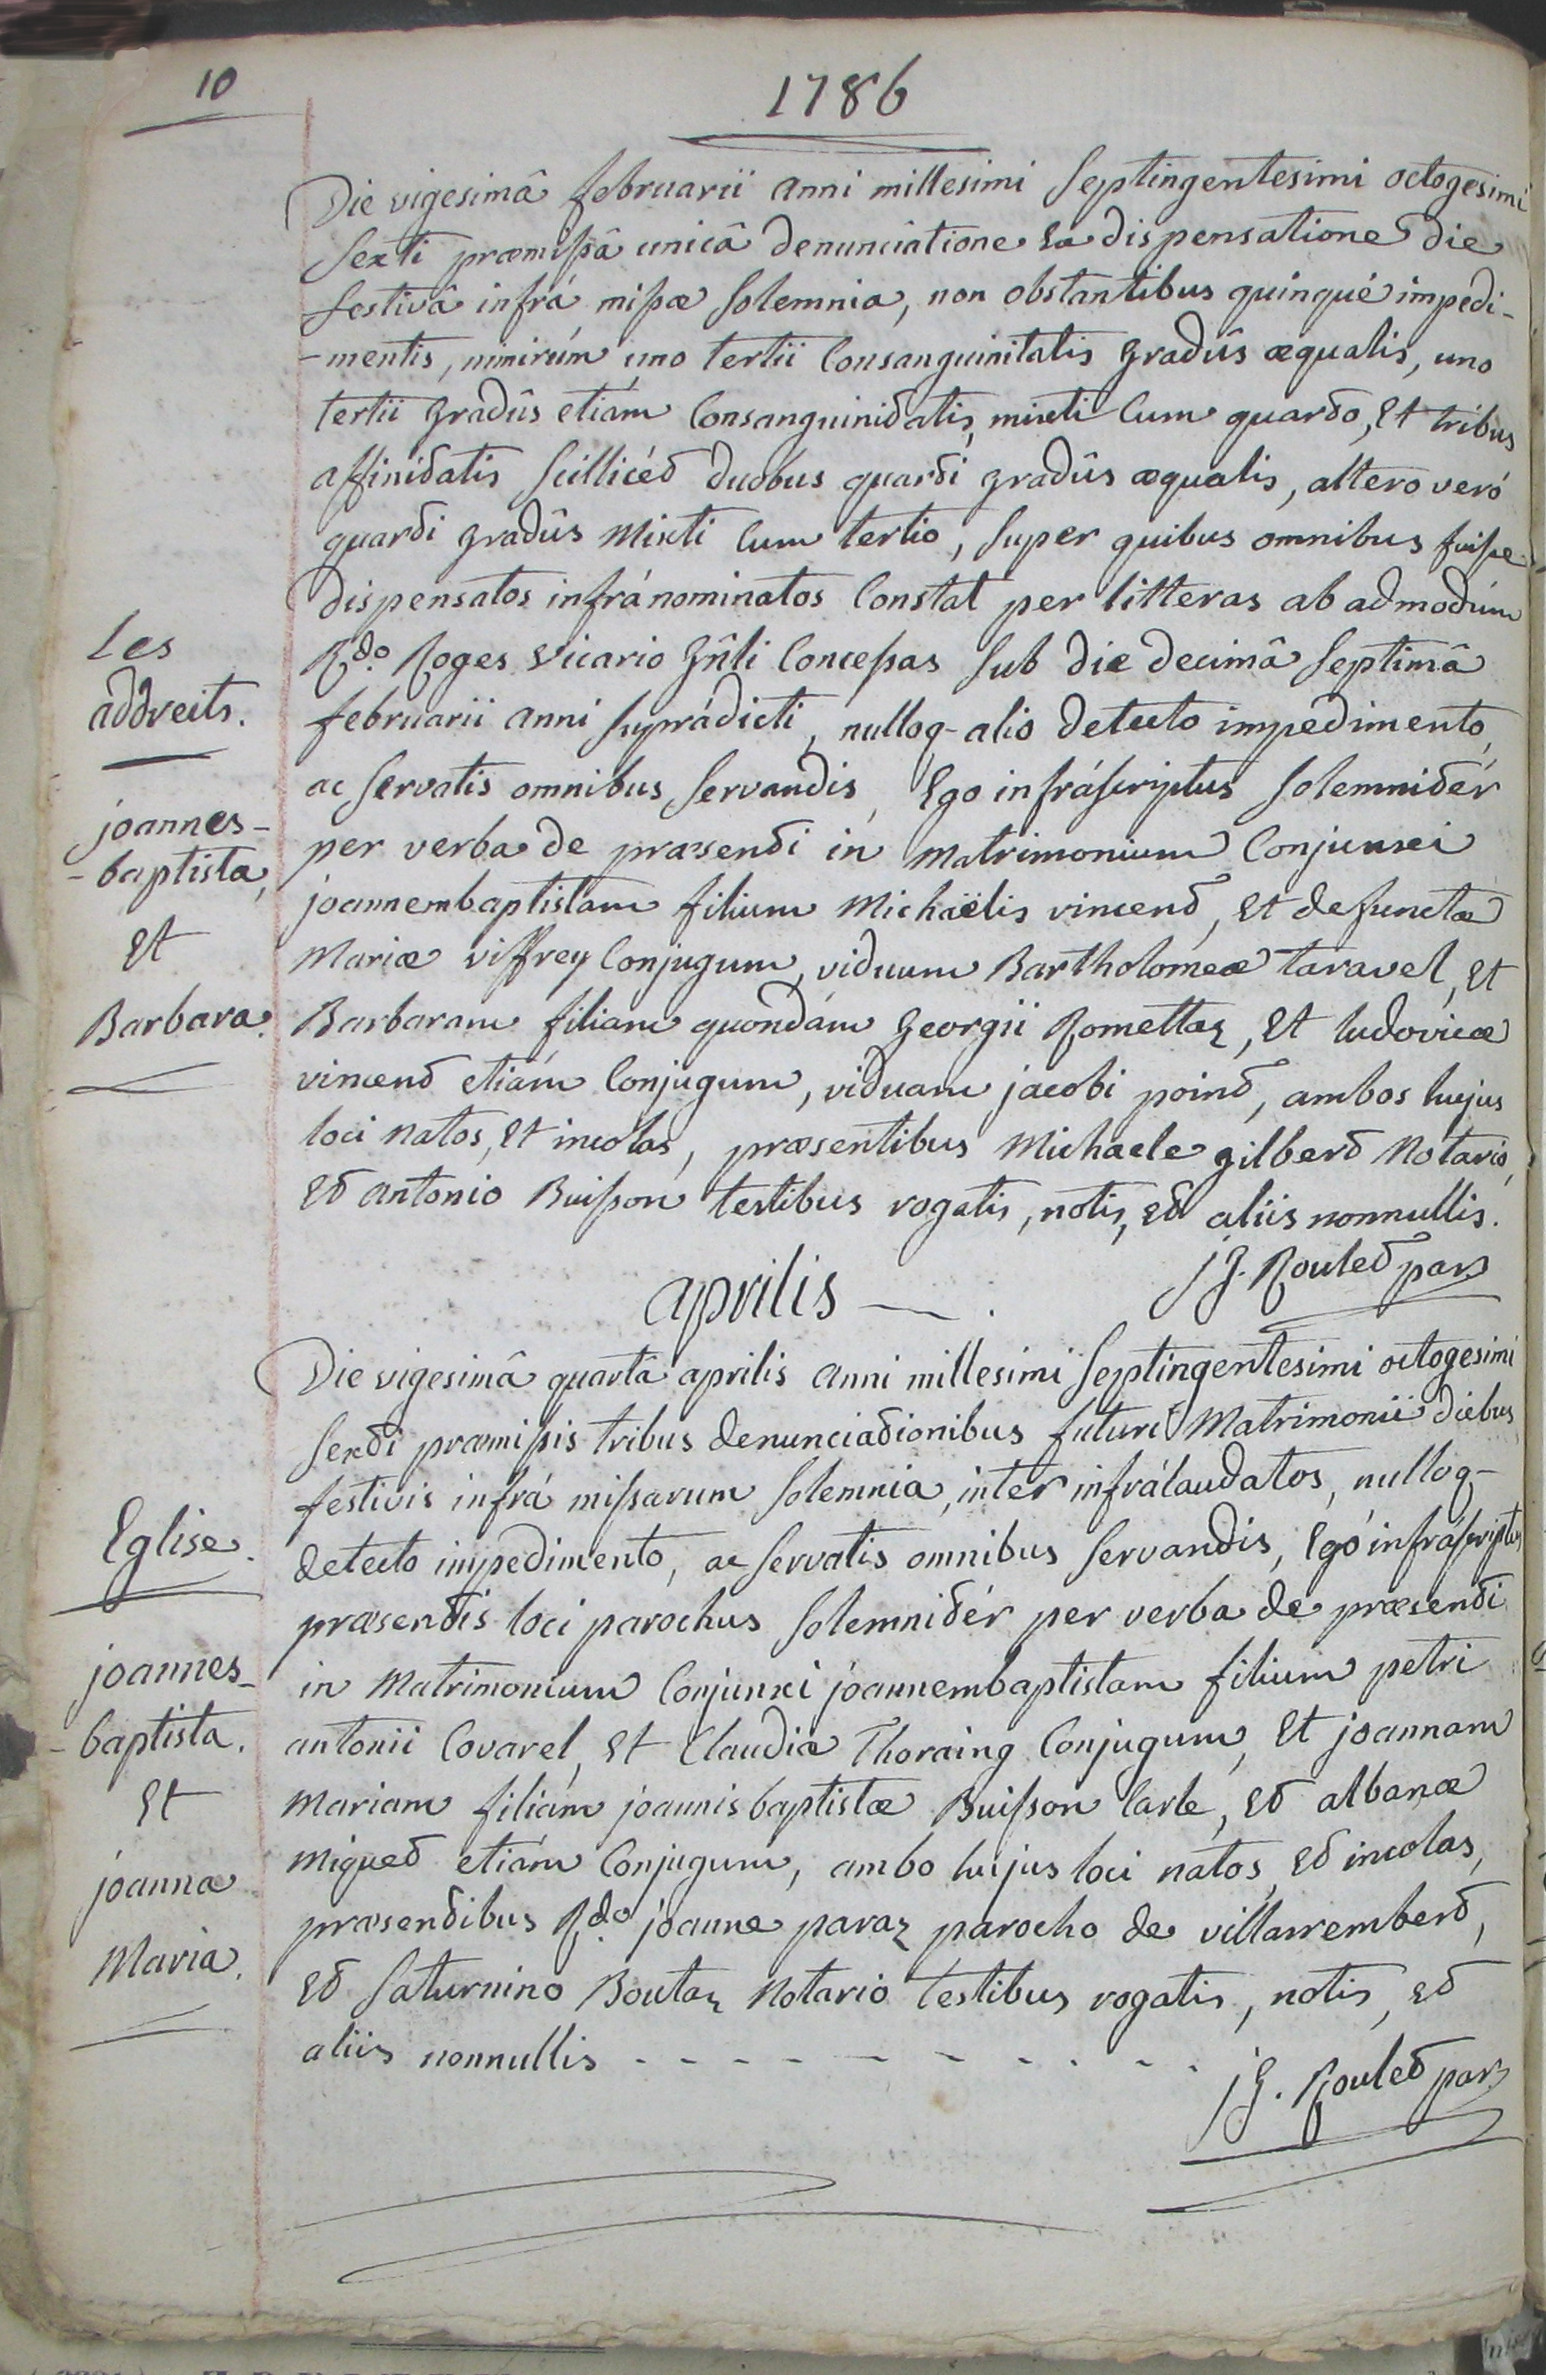 10
1786
Die vigesimâ februarii anni millesimi septingentesimi octogesimi
sexti præmissâ unicâ denunciatione ex dispensatione die
festivâ infrá missæ solemnia, non obstantibus quinqué impedi-
-mentis, nimirúm uno tertii Consanguinitatis gradûs æqualis, uno
tertii gradûs etiám Consanguinitatis, mixti cum quarto, Et tribus
affinitatis scillicét duobus quarti gradûs æqualis, altero veró
quarti gradûs Mixti cum tertio, super quibus omnibus fuisse
dispensatos infránominatos Constat per litteras ab admodúm
les
Rdo. Roges vicario gñli Concessas sub die decimâ septimâ
addreits.
februarii anni suprádicti, nulloq- alio detecto impedimento,
ac servatis omnibus servandis, Ego infráscriptus solemnitér
joannes-
per verba de præsenti in Matrimonium Conjunxi
-baptista,
joannembaptistam filium Michaëlis vincend, Et defunctæ
Et
Mariæ viffrey Conjugum, viduum Bartholomeæ taravel, Et
Barbara.
Barbaram filiam quondám georgii Romettaz, Et ludovicæ
vincend etiám Conjugum, viduam jacobi point, ambos hujus
loci natos, Et incolas, præsentibus Michaele gilbert Notario,
Et antonio Buisson testibus rogatis, notis, et aliis nonnullis.
JG. Roulet par.
aprilis
Die vigesimâ quartâ aprilis anni millesimi septingentesimi octogesimi
sexti præmissis tribus denunciationibus futuri Matrimonii diebus
festivis infrá missarum solemnia, inter infrálaudatos, nulloq-
Eglise.
detecto impedimento, ac servatis omnibus servandis, Egó infráscriptus
præsentis loci parochus solemnitér per verba de præsenti
joannes-
in Matrimonium Conjunxi joannembaptistam filium petri
-baptista.
antonii Covarel, Et Claudia Thoraing Conjugum, Et joannam
Et
Mariam filiám joannisbaptistæ Buisson Carle, Et albanæ
miguet etiám Conjugum, ambo hujus loci natos, Et incolas,
joanna
præsentibus Rdo. joanne paraz parocho de villarrembert,
Maria.
Et saturnino Boutaz Notario testibus rogatis, notis, Et
aliis nonnullis - - - - - - - - - -
JG. Roulet par.